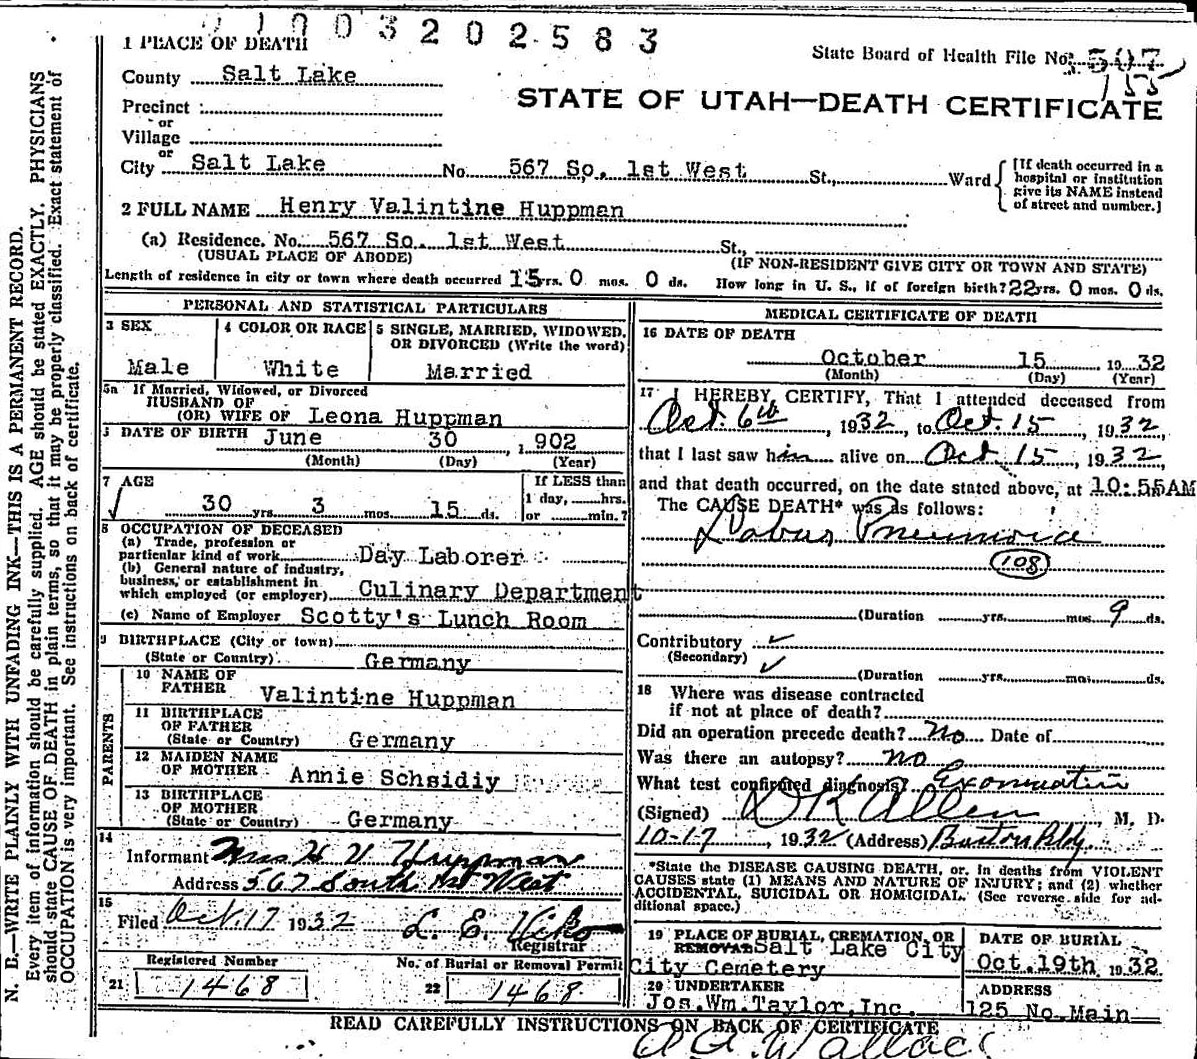 003202583
State Board of Health File No. 507
155
STATE OF UTAH—DEATH CERTIFICATE
1 PLACE OF DEATH
County Salt Lake
Precinct
or
Village
or
City Salt Lake No. 567 So. 1st West St., Ward
[If death occurred in a hospital or institution give its NAME instead of street and number.]
2 FULL NAME Henry Valintine Huppman
(a) Residence. No. 567 So. 1st West St.,
(USUAL PLACE OF ABODE) (IF NON-RESIDENT GIVE CITY OR TOWN AND STATE)
Length of residence in city or town where death occurred 15 yrs. 0 mos. 0 ds. How long in U. S., if of foreign birth? 22 yrs. 0 mos. 0 ds.
PERSONAL AND STATISTICAL PARTICULARS
3 SEX
Male
4 COLOR OR RACE
White
5 SINGLE, MARRIED, WIDOWED,
OR DIVORCED (Write the word)
Married
5a If Married, Widowed, or Divorced
HUSBAND OF
(OR) WIFE OF Leona Huppman
DATE OF BIRTH June 30, 1902
(Month) (Day) (Year)
7 AGE
30 yrs. 3 mos. 15 ds.
If LESS than
1 day, hrs.
or min.?
8 OCCUPATION OF DECEASED
(a) Trade, profession or
particular kind of work Day Laborer
(b) General nature of industry,
business, or establishment in
which employed (or employer) Culinary Department
(c) Name of Employer Scotty's Lunch Room
9 BIRTHPLACE (City or town)
(State or Country) Germany
PARENTS
10 NAME OF
FATHER Valintine Huppman
11 BIRTHPLACE
OF FATHER
(State or Country) Germany
12 MAIDEN NAME
OF MOTHER Annie Schsidiy
13 BIRTHPLACE
OF MOTHER
(State or Country) Germany
14
Informant Mrs H V Huppman
Address 567 South 1st West
15
Filed Oct. 17 1932 L. E. Viko
Registrar
Registered Number
21 1468
No. of Burial or Removal Permit
22 1468
MEDICAL CERTIFICATE OF DEATH
16 DATE OF DEATH
October 15 1932
(Month) (Day) (Year)
17 I HEREBY CERTIFY, That I attended deceased from
Oct. 6th, 1932, to Oct. 15, 1932,
that I last saw him alive on Oct 15, 1932,
and that death occurred, on the date stated above, at 10:55AM
The CAUSE DEATH* was as follows:
Lobar Pneumonia
108
(Duration yrs. mos. 9 ds.
Contributory
(Secondary)
(Duration yrs. mos. ds.
18 Where was disease contracted
if not at place of death?
Did an operation precede death? No Date of
Was there an autopsy? no
What test confirmed diagnosis? Examination
(Signed) D K Allen, M. D.
10-17, 1932 (Address) Boston Bldg
*State the DISEASE CAUSING DEATH, or, in deaths from VIOLENT
CAUSES state (1) MEANS AND NATURE OF INJURY; and (2) whether
ACCIDENTAL, SUICIDAL OR HOMICIDAL. (See reverse side for ad-
ditional space.)
19 PLACE OF BURIAL, CREMATION, OR
REMOVAL Salt Lake City
City Cemetery
DATE OF BURIAL
Oct. 19th 1932
20 UNDERTAKER
Jos. Wm. Taylor, Inc.
ADDRESS
125 No. Main
READ CAREFULLY INSTRUCTIONS ON BACK OF CERTIFICATE
N. B.—WRITE PLAINLY WITH UNFADING INK—THIS IS A PERMANENT RECORD.
Every item of information should be carefully supplied. AGE should be stated EXACTLY. PHYSICIANS
should state CAUSE OF DEATH in plain terms, so that it may be properly classified. Exact statement of
OCCUPATION is very important. See instructions on back of certificate.